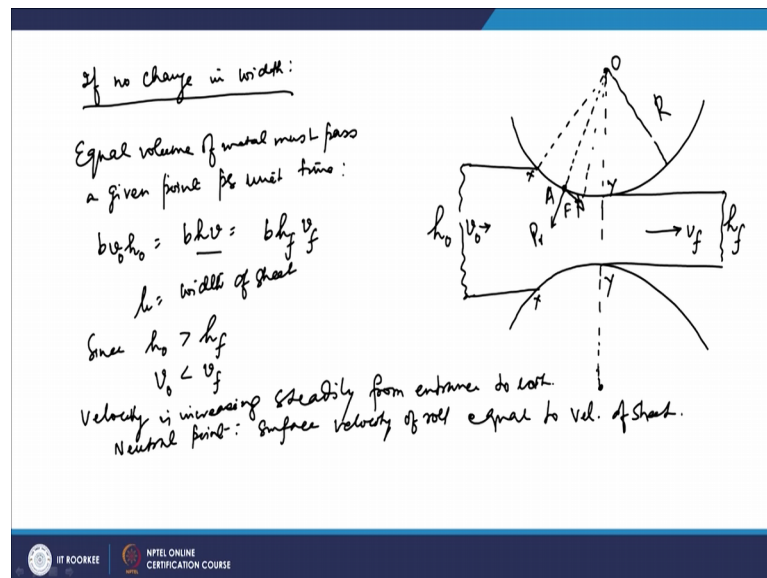 If no change in width:
Equal volume of metal must pass
a given point per unit time:
b v₀ h₀ = b h v = b h_f v_f
h = width of sheet
Since h₀ > h_f
v₀ < v_f
Velocity is increasing steadily from entrance to exit.
Neutral point: Surface velocity of roll equal to vel. of sheet.
O
R
X
Y
A
F
N
P_r
h₀
v₀→
→v_f
h_f
Y
X
IIT ROORKEE
NPTEL ONLINE
CERTIFICATION COURSE